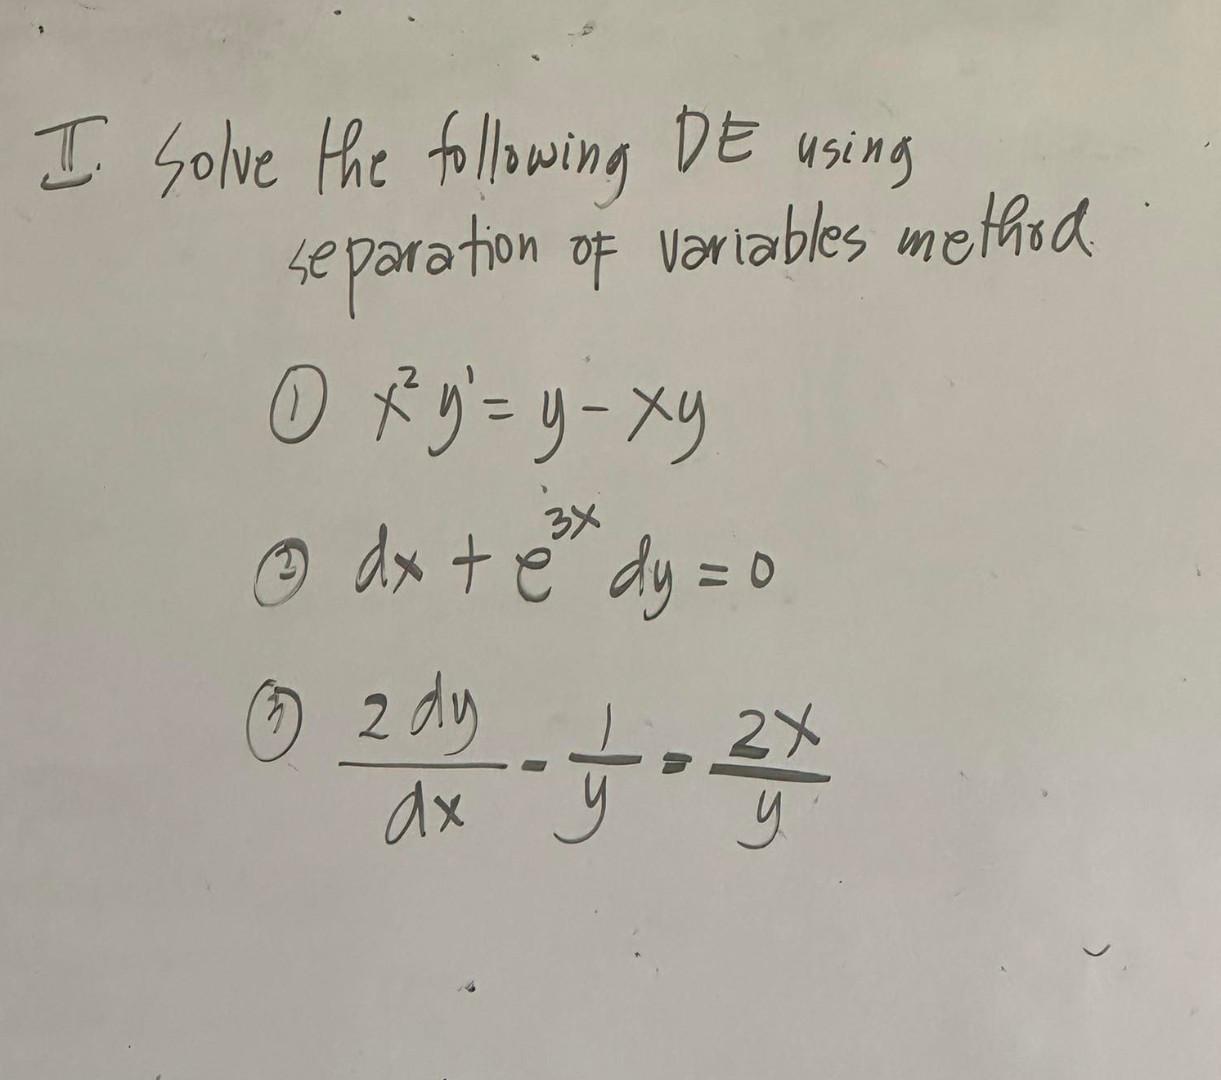 II. Solve the following DE using
separation of variables method.
① x² y' = y - xy
② dx + e^{3x} dy = 0
③ \frac{2 dy}{dx} - \frac{1}{y} = \frac{2x}{y}